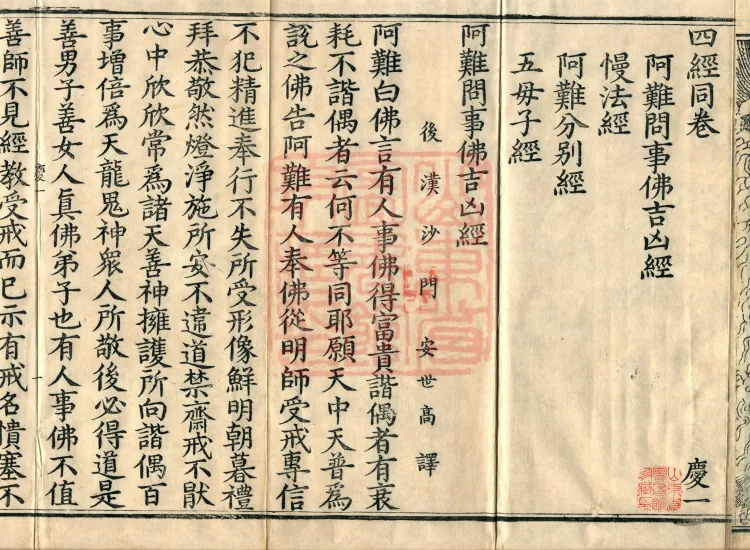 四經同卷
慶一
阿難問事佛吉凶經
慢法經
阿難分别經
五母子經
阿難問事佛吉凶經
後漢沙門安世高譯
阿難白佛言有人事佛得富貴諧偶者有衰
耗不諧偶者云何不等同耶願天中天普為
說之佛告阿難有人奉佛從明師受戒專信
不犯精進奉行不失所受形像鮮明朝暮禮
拜恭敬然燈淨施所安不違道禁齋戒不猒
心中欣欣常爲諸天善神擁護所向諧偶百
事增倍爲天龍鬼神衆人所敬後必得道是
善男子善女人真佛弟子也有人事佛不值
慶一
一
善師不見經教受戒而已示有戒名憒塞不